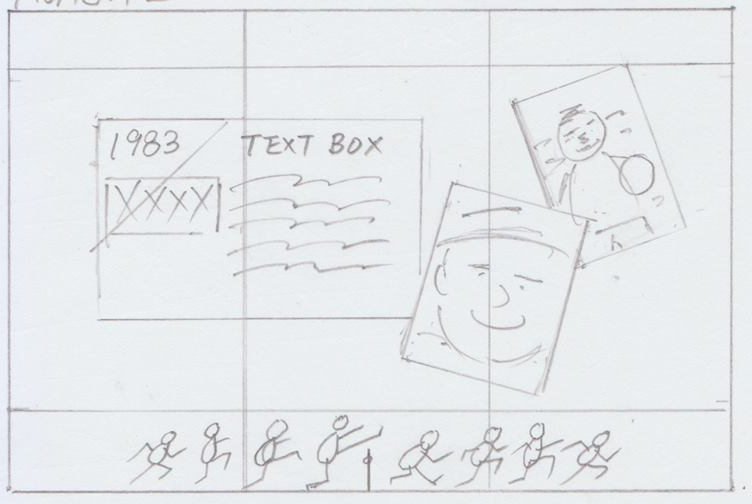 1983
XXXX
TEXT BOX